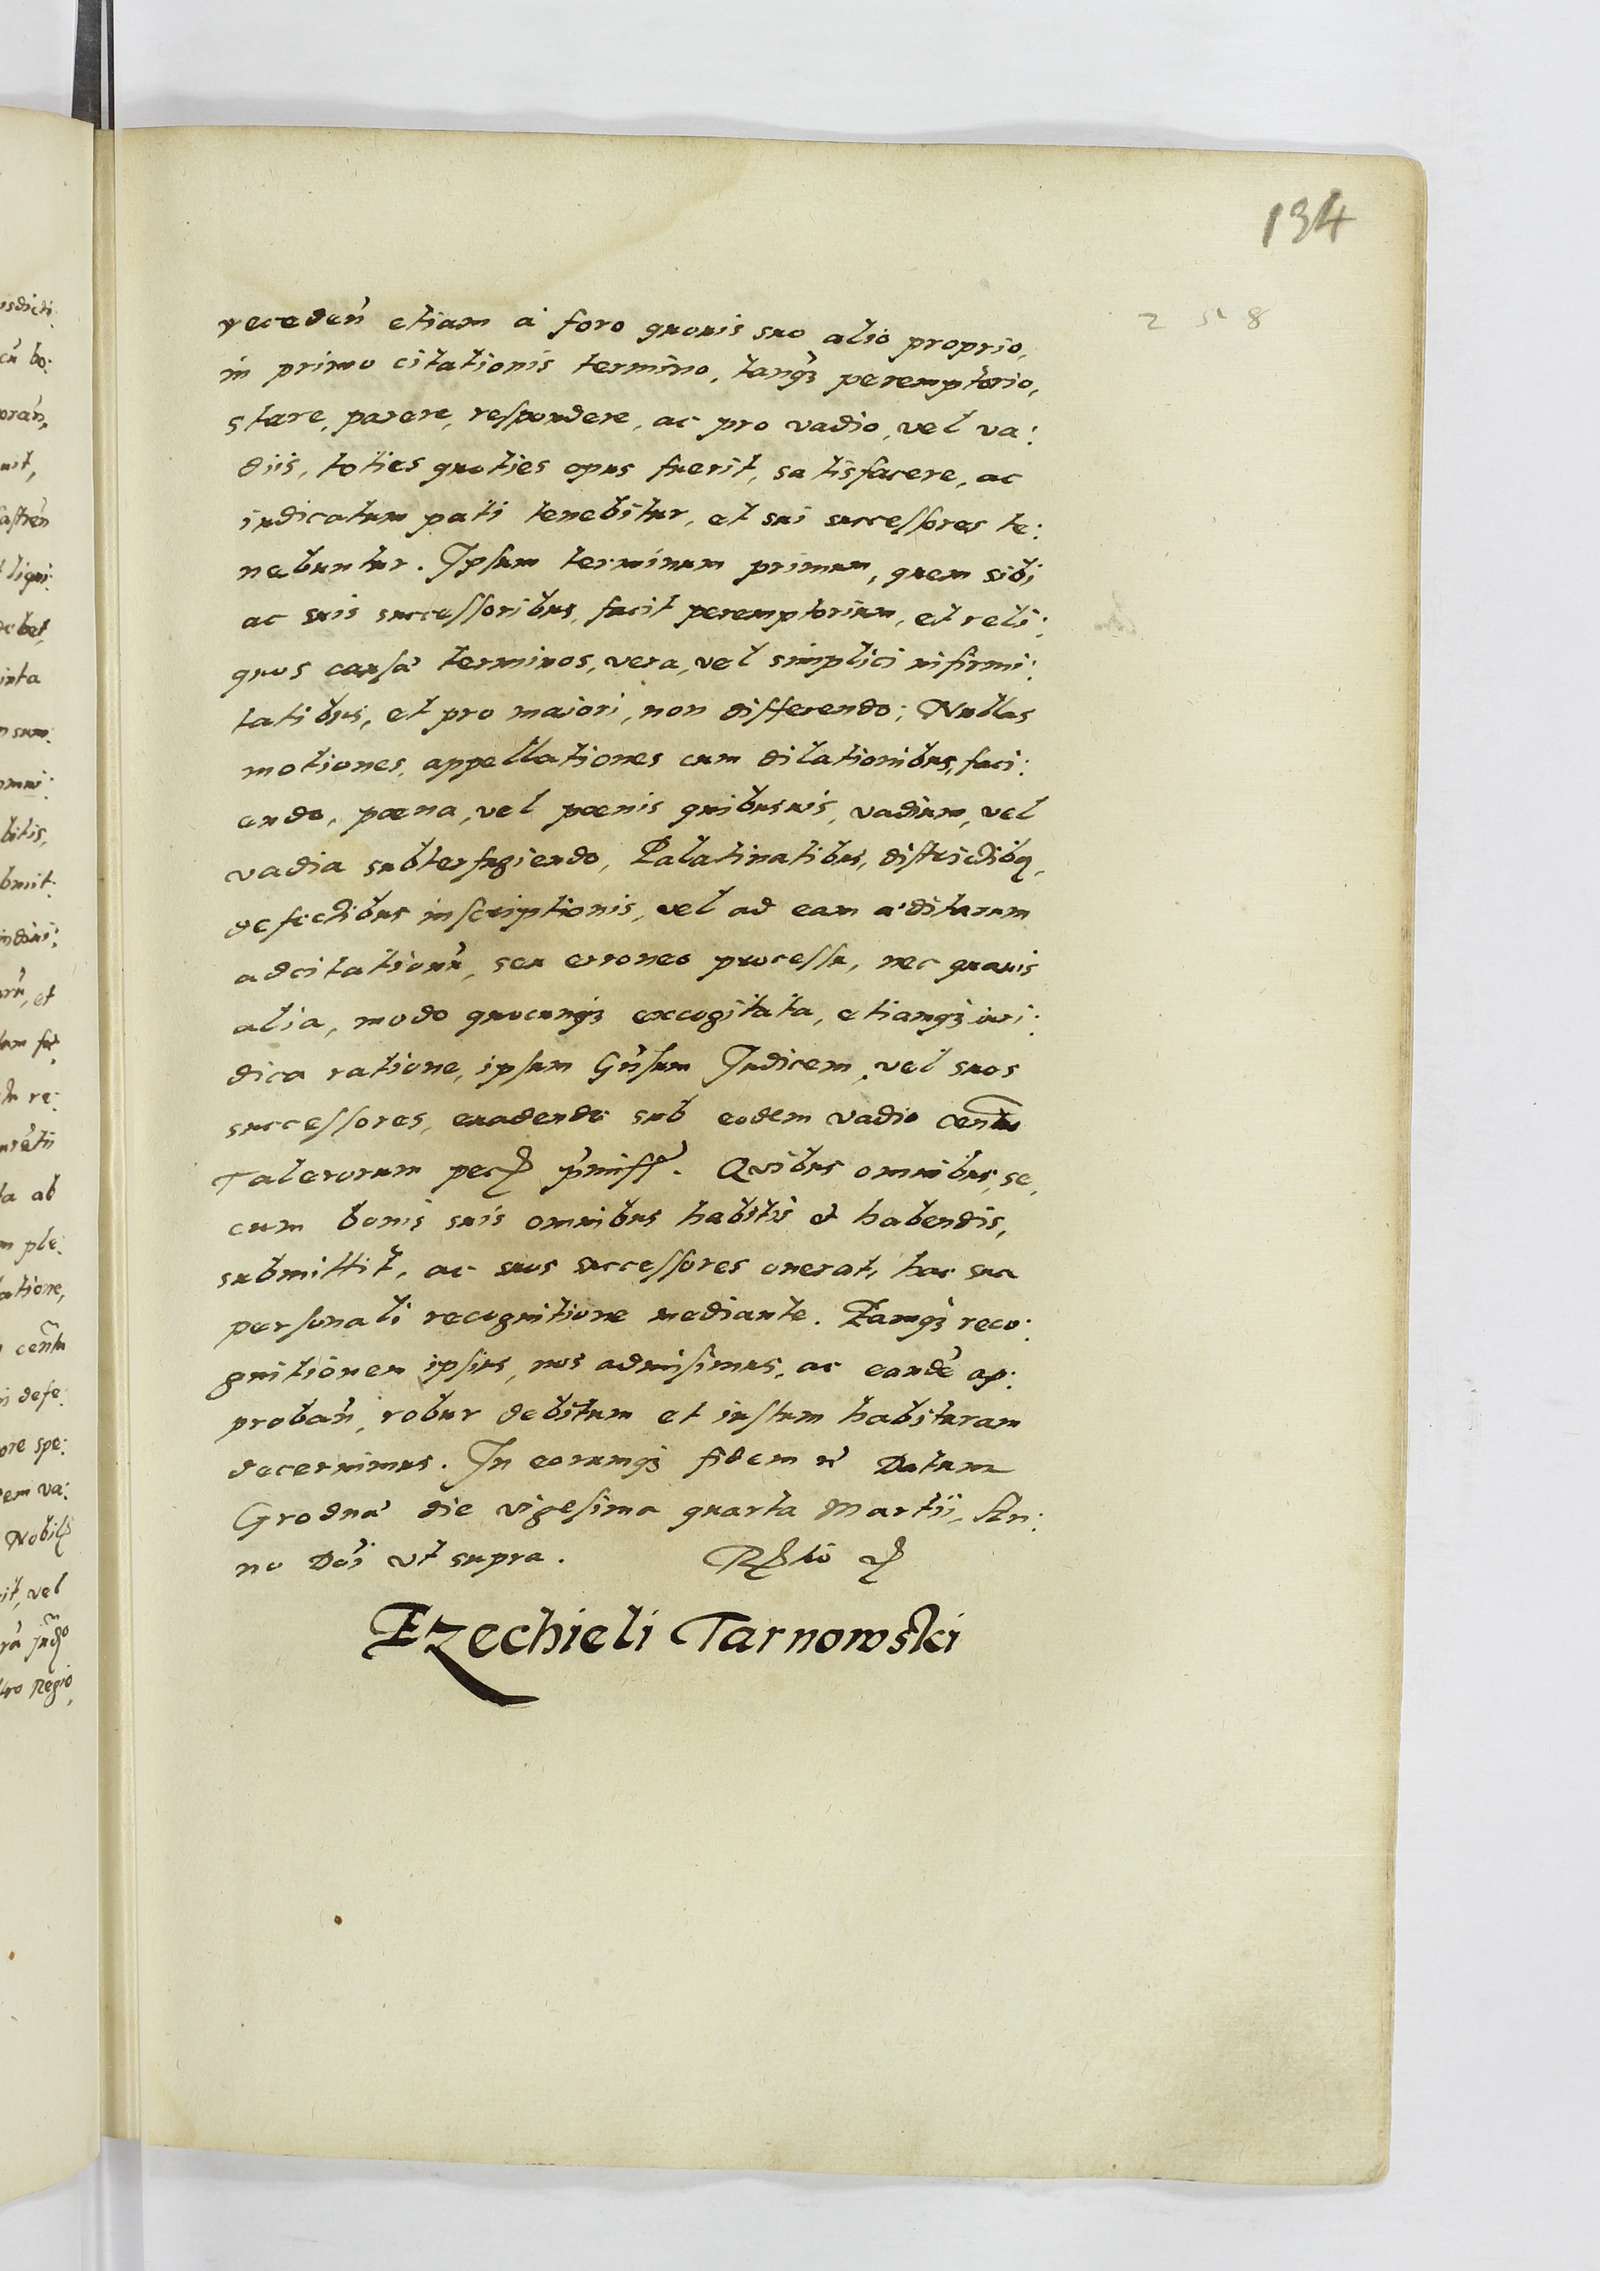 134
258
receden̄ etiam à foro quouis suo alio proprio,
in primo citationis termino, tanqȝ peremptorio,
stare, parere, respondere, ac pro vadio, vel va:
diis, toties quoties opus fuerit, satisfacere, ac
iudicatum pati tenebitur, et sui successores te:
nebuntur. Ipsum terminum primum, quem sibi
ac suis successoribus, facit peremptorium, et reli:
quos causa terminos, vera, vel simplici infirmi:
tatibus, et pro maiori, non differendo; Nullas
motiones, appellationes cum dilationibus, faci:
endo, pæna, vel pœnis quibusuis, vadium, vel
vadia subterfugiendo, Palatinatibus, districtibꝫ,
defectibus inscriptionis, vel ad eam aditarum
adcitationū, seu erroneo processu, nec quauis
alia, modo quocunqȝ excogitata, etiamqȝ iuri:
dica ratione, ipsum Gn̄sum Judicem, vel suos
successores, euadendo sub eodem vadio centū
Talerorum p̄miss. Quibus omnibus, se,
cum bonis suis omnibus habitis & habendis,
submittit, ac suos successores onerat, hac sua
personali recognitione mediante. Eamqȝ reco:
gnitionem ipsius, nos admisimus, ac eandē ap:
proban̄, robur debitum et iustum habituram
decernimus. In eorumqȝ fidem Datum
Grodnæ die vigesima quarta Martii, An:
no Dn̄i vt supra.
Ezechieli Tarnowski